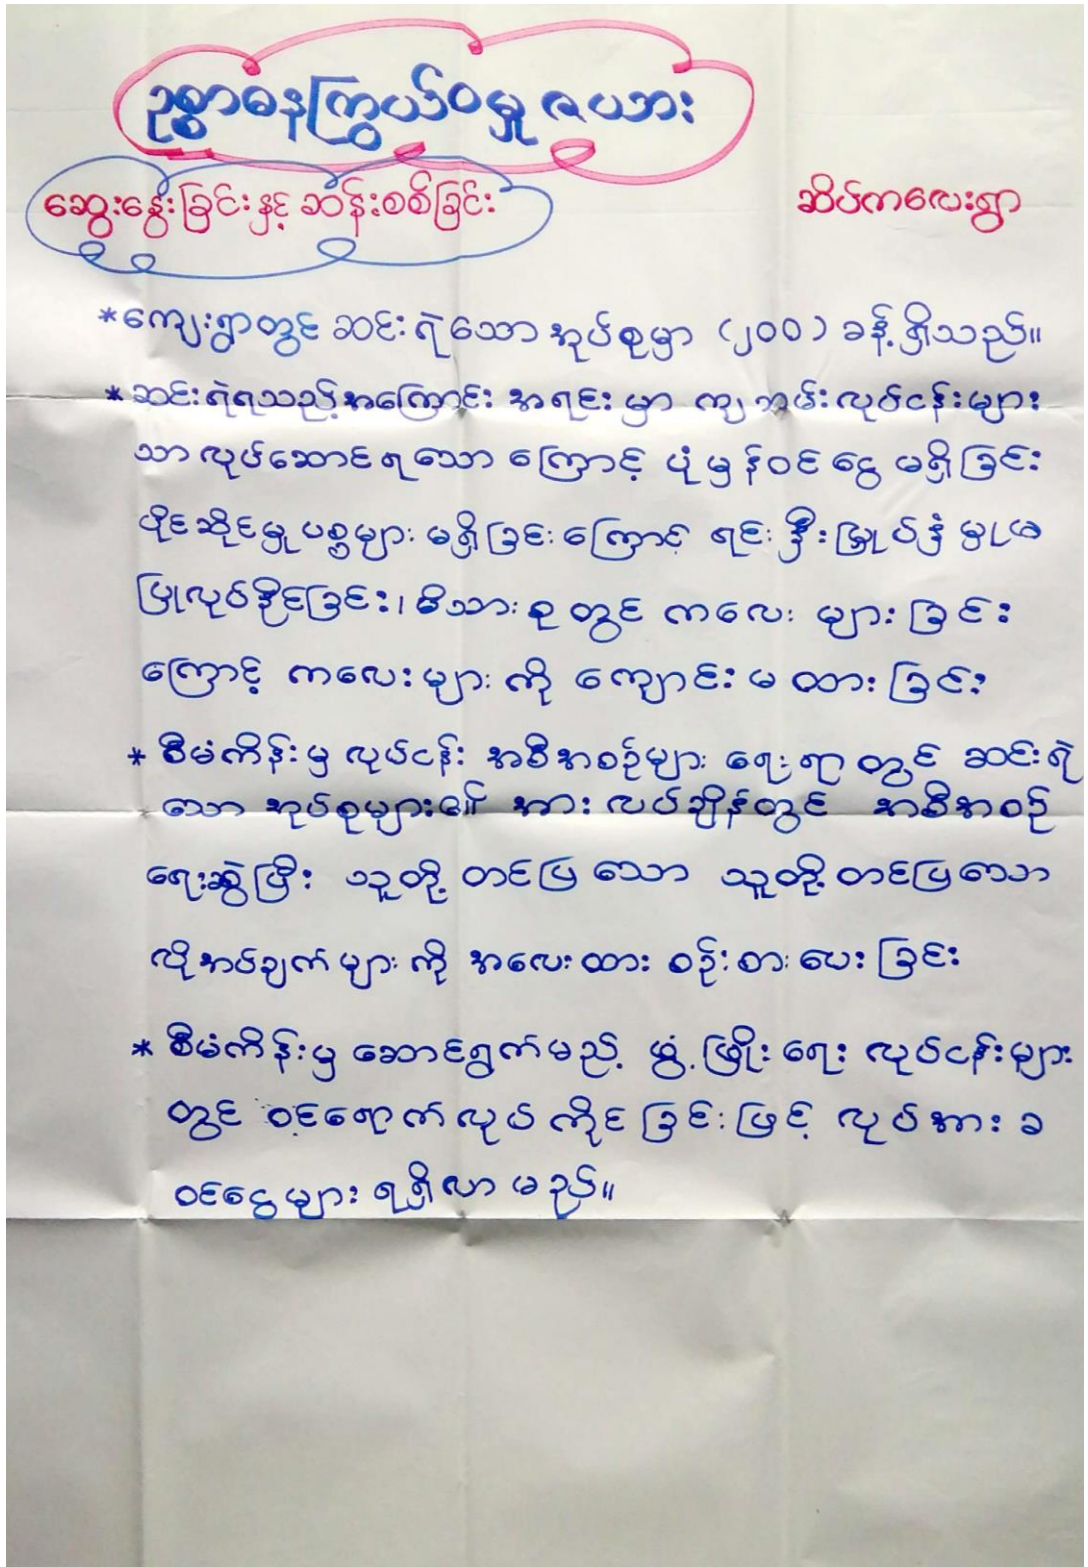 ဥစ္စာဓနကြွယ်ဝမှု ဇယား
ဆွေးနွေးခြင်းနှင့် ဆန်းစစ်ခြင်း
ဆိပ်ကလေးရွာ
*ကျေးရွာတွင် ဆင်းရဲသော အုပ်စုမှာ (၂၀၀) ခန့်ရှိသည်။
* ဆင်းရဲရသည့်အကြောင်း အရင်းမှာ ကျဘမ်းလုပ်ငန်းများ
သာ လုပ်ဆောင်ရသော ကြောင့် ပုံမှန်ဝင်ငွေ မရှိခြင်း
ပိုင်ဆိုင်မှုပစ္စများ မရှိခြင်းကြောင့် ရင်းနှီးမြှုပ်နှံမှုမ
ပြုလုပ်နိုင်ခြင်း၊ မိသားစုတွင် ကလေး များခြင်း
ကြောင့် ကလေးများ ကို ကျောင်းမထားခြင်း
* စီမံကိန်းမှ လုပ်ငန်း အစီအစဉ်များ ရေးရာတွင် ဆင်းရဲ
သော အုပ်စုများ၏ အားလပ်ချိန်တွင် အစီအစဉ်
ရေးဆွဲပြီး သူတို့ တင်ပြသော သူတို့ တင်ပြသော
လိုအပ်ချက်များကို အလေးထား စဉ်းစားပေးခြင်း
* စီမံကိန်းမှ ဆောင်ရွက်မည့် ဖွံ့ဖြိုးရေး လုပ်ငန်းများ
တွင် ဝင်ရောက်လုပ်ကိုင်ခြင်းဖြင့် လုပ်အားခ
ဝင်ငွေများ ရရှိလာမည်။